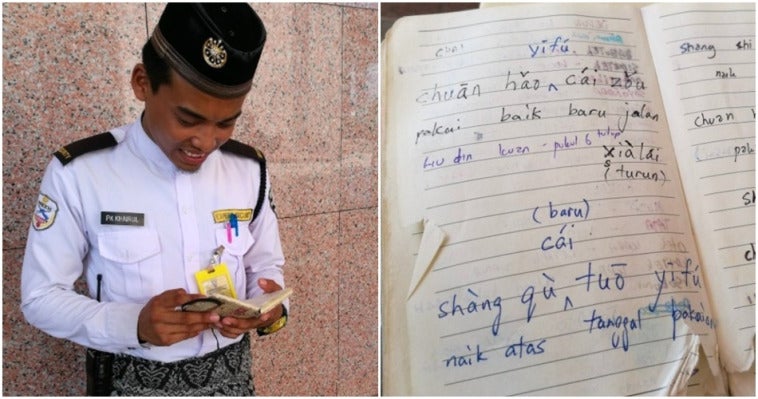 PK KHAIRUL
yīfú.
chuān hǎo ^ cái zǒu
pakai baik baru jalan
liu din kuan - pukul 6 tutup
xiàlái
(turun)
(baru)
cái
shàng qù ^ tuō yīfú
naik atas tanggal pakaian
shàng shi
naik
chuan
pak